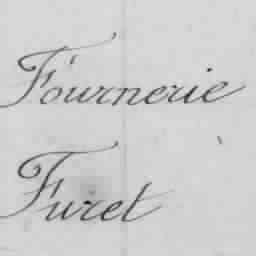 Fournerie
Furet